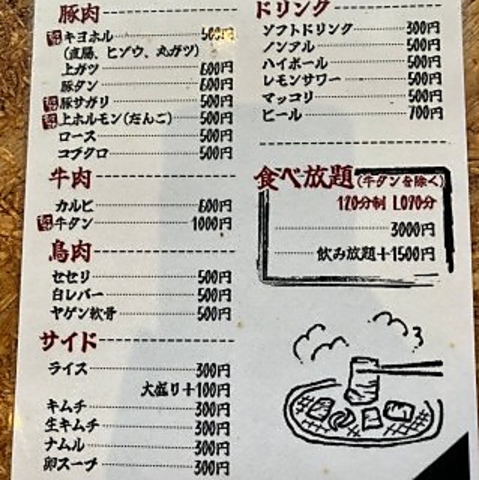 豚肉
キヨホル 500円
(直腸、ヒゾウ、丸ガツ)
上ガツ 600円
豚タン 600円
豚サガリ 500円
上ホルモン(だんご) 500円
ロース 500円
コブクロ 500円
牛肉
カルビ 600円
牛タン 1000円
鳥肉
セセリ 500円
白レバー 500円
ヤゲン軟骨 500円
サイド
ライス 300円
大盛り+100円
キムチ 300円
生キムチ 300円
ナムル 300円
卵スープ 300円
ドリンク
ソフトドリンク 300円
ノンアル 500円
ハイボール 500円
レモンサワー 500円
マッコリ 500円
ビール 700円
食べ放題(牛タンを除く)
120分制 L.O90分
3000円
飲み放題+1500円